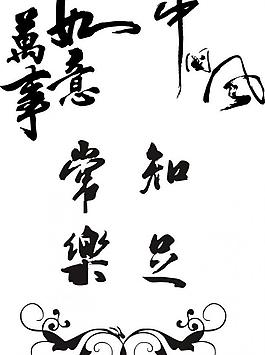 中国风
如意
萬事
知足
常樂